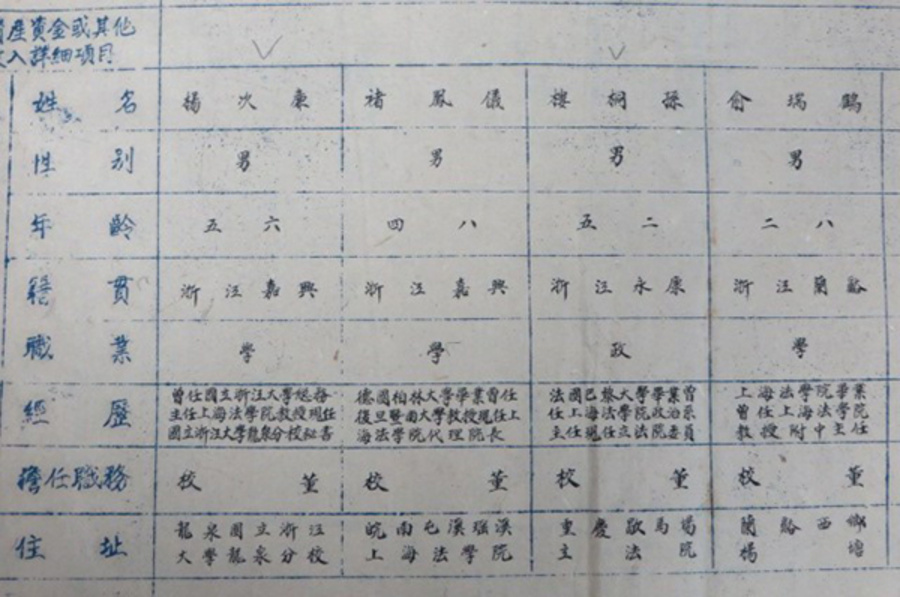 資產資金或其他
收入詳細項目
姓名 楊次廉 褚鳳儀 樓桐孫 俞瑞鷗
性別 男 男 男 男
年齡 五六 四八 五二 二八
籍貫 浙江嘉興 浙江嘉興 浙江永康 浙江蘭谿
職業 學 學 政 學
經歷 曾任國立浙江大學總務 德國柏林大學畢業曾任 法國巴黎大學畢業曾 上海法學院畢業
主任上海法學院教授現任 復旦暨南大學教授現任上 任上海法學院政治系 曾任上海法學院
國立浙江大學龍泉分校秘書 海法學院代理院長 主任現任立法院委員 教授附中主任
擔任職務 校董 校董 校董 校董
住址 龍泉國立浙江 皖南屯溪瑶溪 重慶歇馬場 蘭谿西鄉
大學龍泉分校 上海法學院 立法院 楊塘